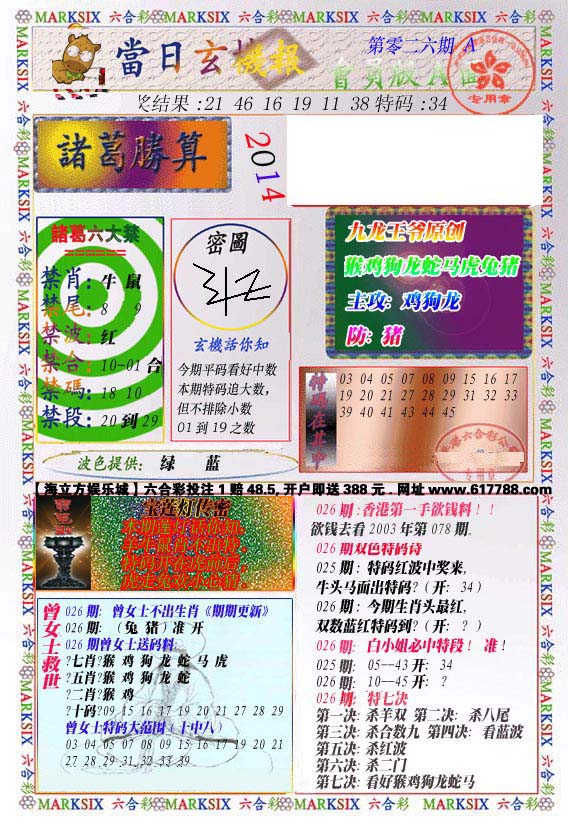 MARKSIX 六合彩 MARKSIX 六合彩 MARKSIX 六合彩 MARKSIX 六合彩
當日玄機報
第零二六期 A
專用章
奖结果 :21 46 16 19 11 38 特码 :34
諸葛勝算
2014
諸葛六大禁
======
禁肖: 牛 鼠
禁尾: 8 9
禁波: 红
禁合: 10-01 合
禁碼: 18 10
禁段: 20 到 29
密圖
玄機活你知
今期平码看好中数
本期特码追大数,
但不排除小数
01 到 19 之数
九龙王爷原创
猴鸡狗龙蛇马虎兔猪
主攻: 鸡狗龙
防: 猪
特码在其中
03 04 05 07 08 09 15 16 17
19 20 21 27 28 29 31 32 33
39 40 41 43 44 45
波色提供: 绿 蓝
【海立方娱乐城】六合彩投注 1 赔 48.5, 开户即送 388 元 . 网址 www.617788.com
宝莲灯传密
曾女士救世
026 期: 曾女士不出生肖《期期更新》
026 期: (兔 猪)准 开
026 期曾女士送码料:
?七肖?猴 鸡 狗 龙 蛇 马 虎
?五肖?猴 鸡 狗 龙 蛇
?二肖?猴 鸡
?十码?09 15 16 17 19 20 21 27 28 29
曾女士特码大范围〈十中八〉
03 04 05 07 08 09 15 16 17 19 20 21
27 28 29 31 32 33 39
026 期 :香港第一手欲钱料!!
欲钱去看 2003 年第 078 期.
026 期双色特码诗
025 期 : 特码红波中奖来,
牛头马面出特码?(开: 34)
026 期 : 今期生肖头最红,
双数蓝红特码到?(开: ?)
026 期: 白小姐必中特段! 准!
025 期: 05--43 开: 34
026 期: 10--45 开: ?
026 期:「特七决
第一决: 杀羊双 第二决: 杀八尾
第三决: 杀合数九 第四决: 看蓝波
第五决: 杀红波
第六决: 杀二门
第七决: 看好猴鸡狗龙蛇马
MARKSIX 六合彩 MARKSIX 六合彩 MARKSIX 六合彩 MARKSIX 六合彩